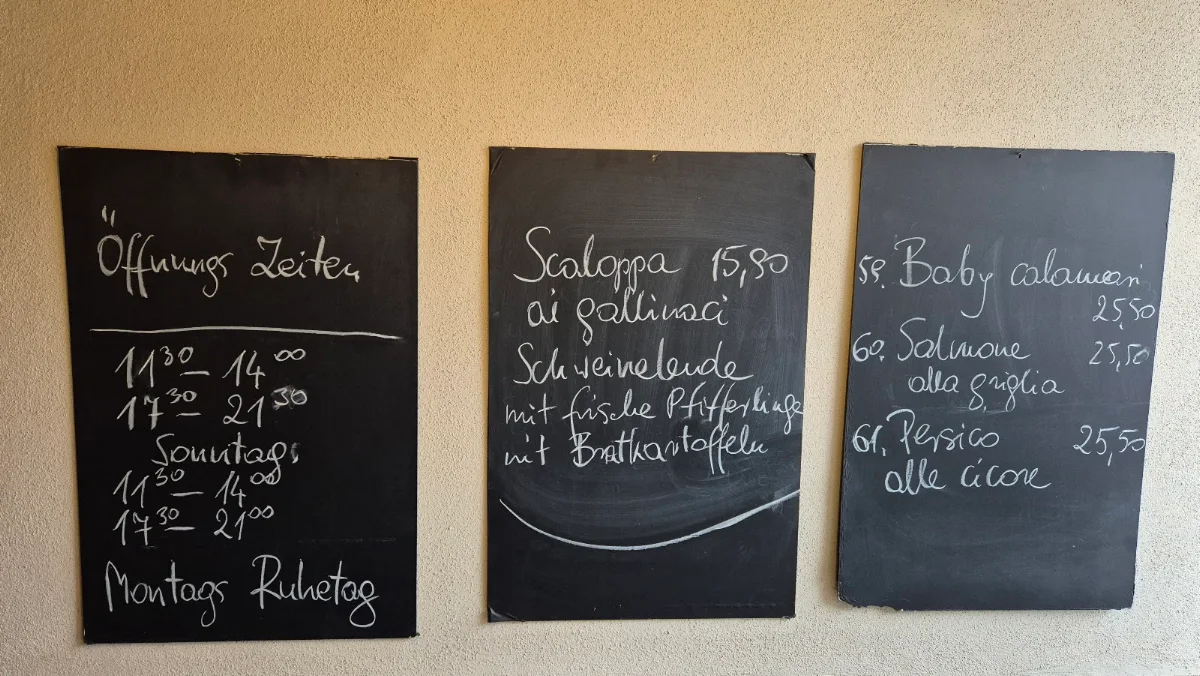 Öffnungs Zeiten
11³⁰ – 14⁰⁰
17³⁰ – 21³⁰
Sonntags
11³⁰ – 14⁰⁰
17³⁰ – 21⁰⁰
Montags Ruhetag
Scaloppa 15,90
ai gallinaci
Schweinelende
mit frische Pfifferlinge
mit Bratkartoffeln
59. Baby calamari
25,50
60. Salmone 25,50
alla griglia
61. Persico 25,50
alle cicore